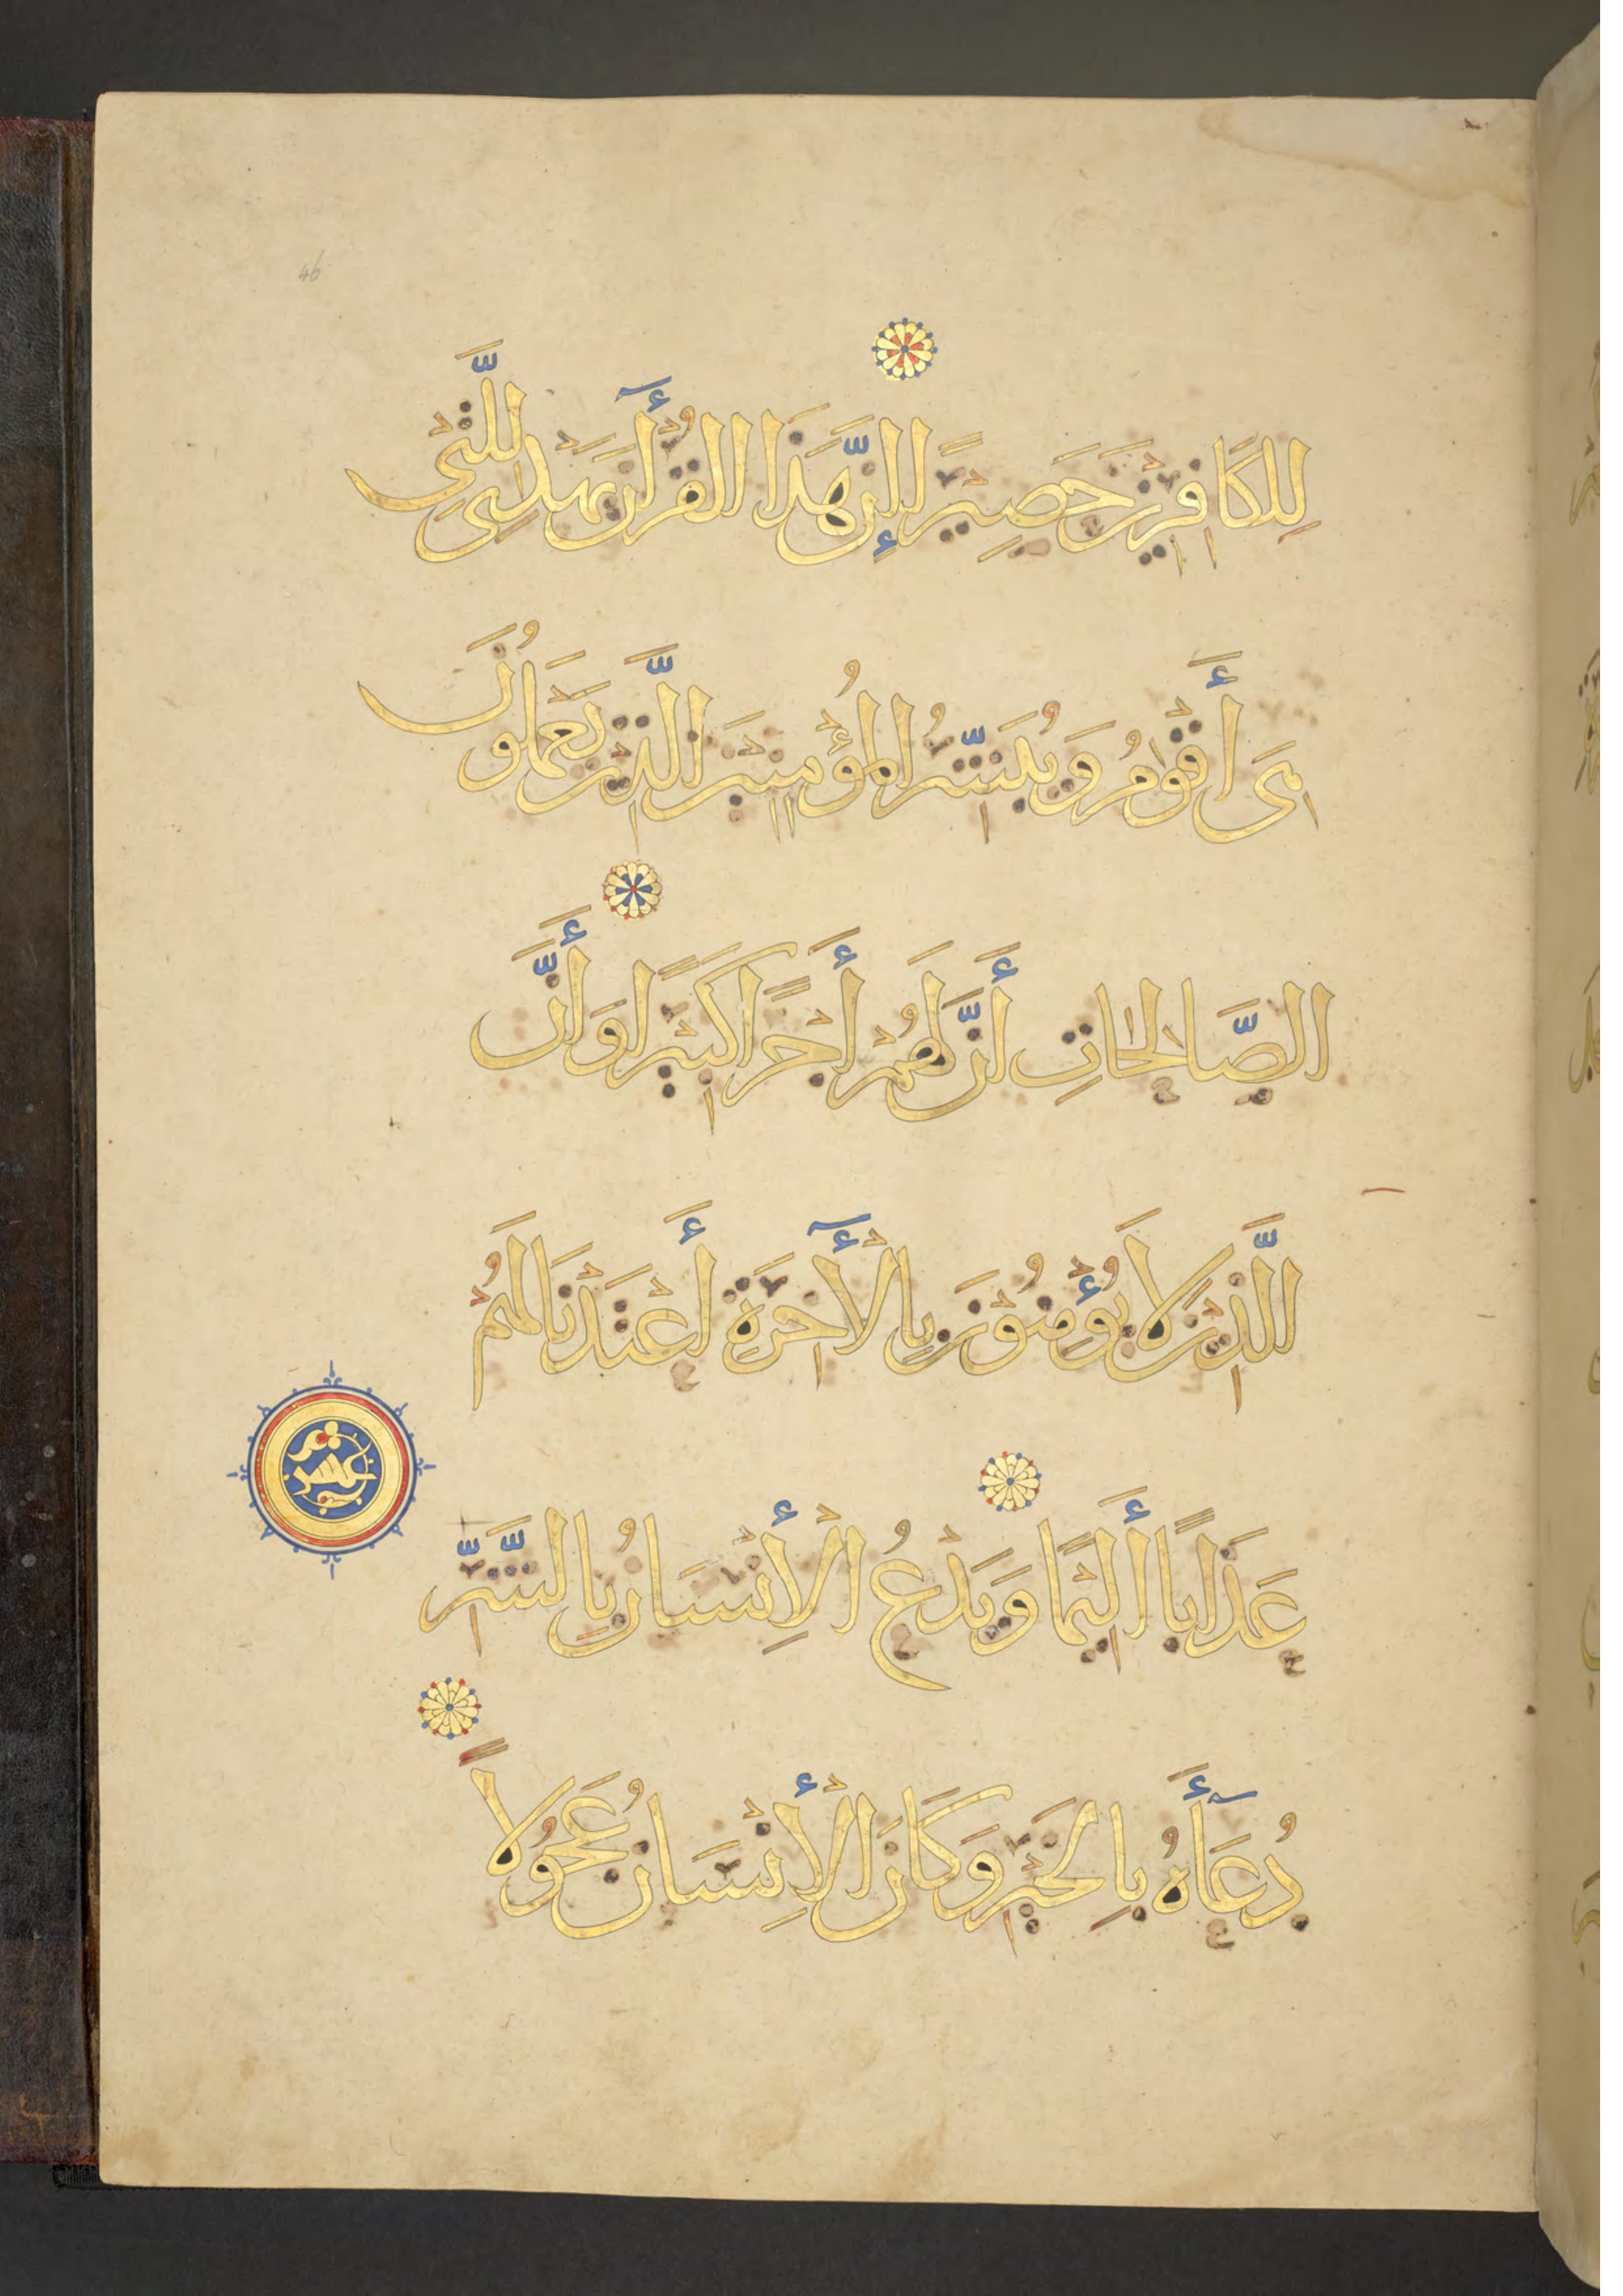 46
لِلْكَافِرِيْنَ حَصِيْرًا إِنَّ هَذَا الْقُرْأٓنَ يَهْدِيْ لِلَّتِيْ
هِىَ أَقْوَمُ وَيُبَشِّرُ الْمُؤْمِنِيْنَ الَّذِيْنَ يَعْمَلُوْنَ
الصَّالِحَاتِ أَنَّ لَهُمْ أَجْرًا كَبِيْرًا وَأَنَّ
الَّذِيْنَ لَا يُؤْمِنُوْنَ بِالْأٓخِرَةِ أَعْتَدْنَا لَهُمْ
عَذَابًا أَلِيْمًا وَيَدْعُ الْإِنْسَانُ بِالشَّرِّ
عشر
دُعَآءَهُ بِالْخَيْرِ وَكَانَ الْإِنْسَانُ عَجُوْلًا